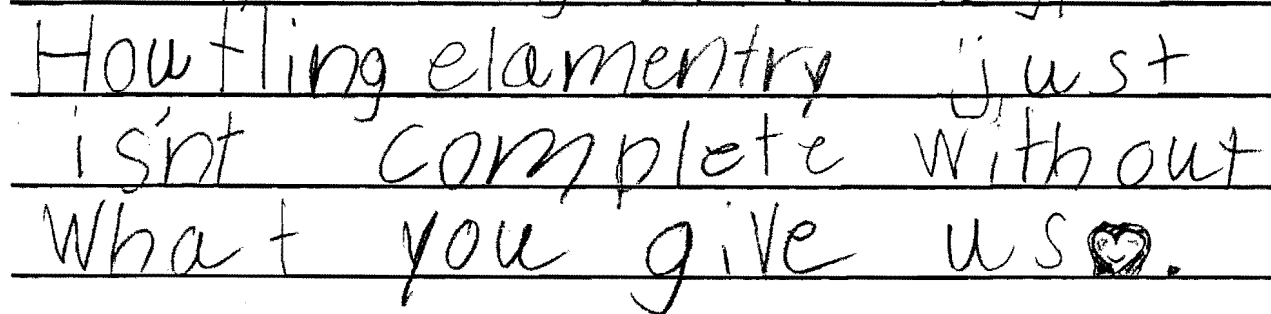 Houtling elamentry just
isn't complete without
What you give us.